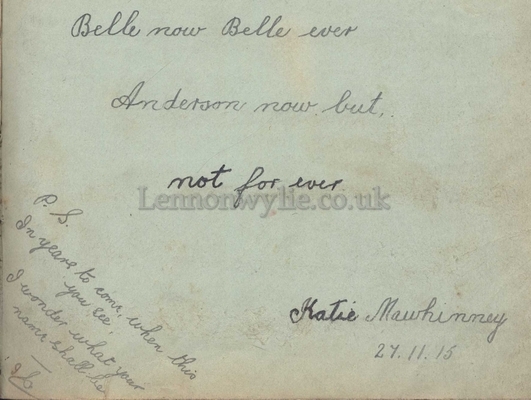 Belle now Belle ever
Anderson now but,
not for ever
Lennonwylie.co.uk
P. S.
In years to come, when this
you see,
I wonder what your
name shall be
Katie Mawhinney
27.11.15